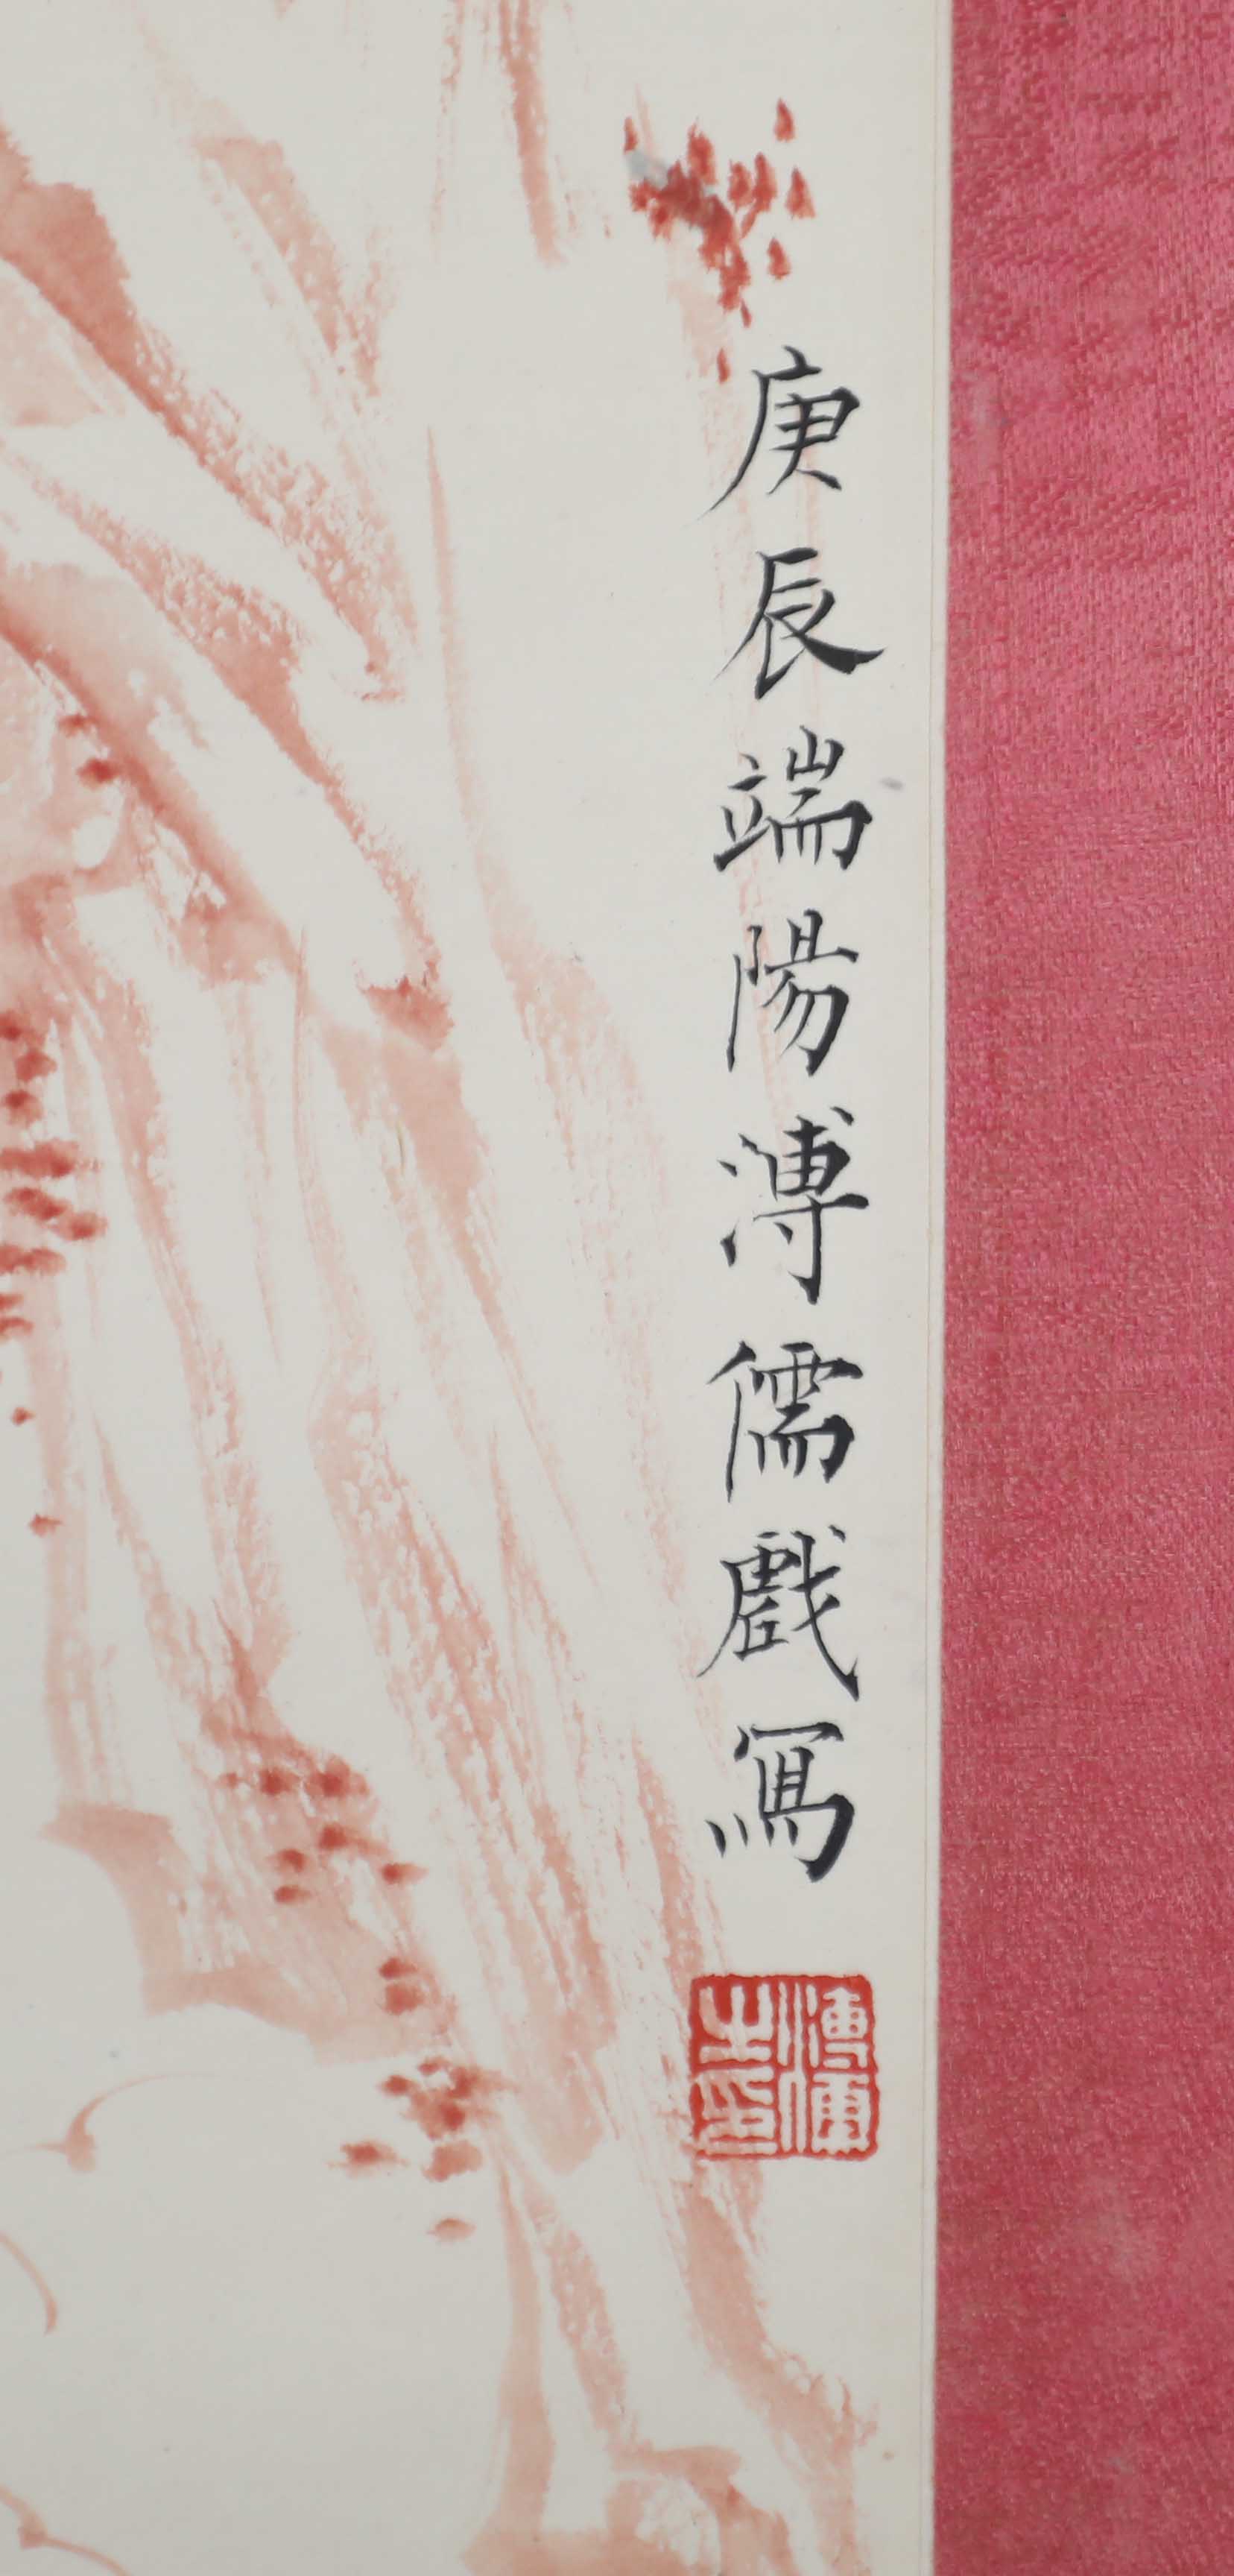 庚辰端陽溥儒戲寫
溥儒之印